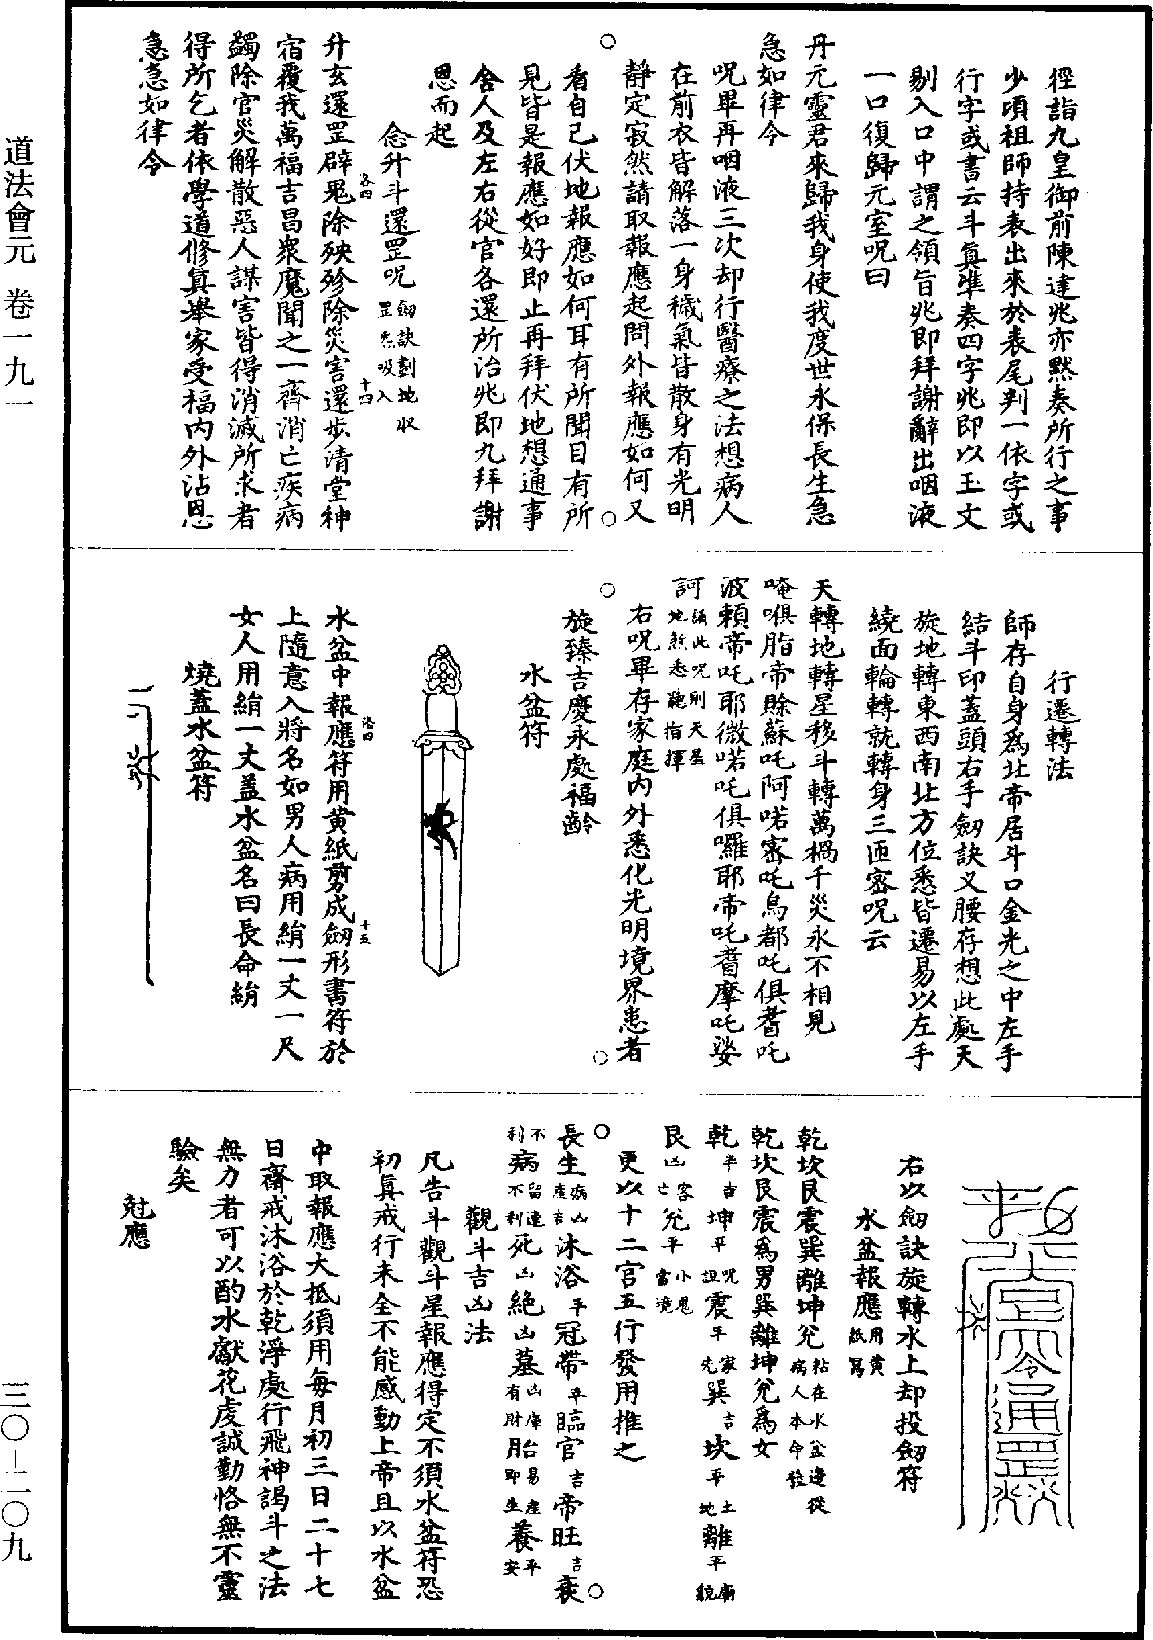 道法會元 卷一九一
徑詣九皇御前陳達兆亦默奏所行之事
少頃祖師持表出來於表尾判一依字或
行字或書云斗真準奏四字兆即以玉文
剔入口中謂之領旨兆即拜謝辭出咽液
一口復歸元室呪曰
丹元靈君來歸我身使我度世永保長生急
急如律令
呪畢再咽液三次却行醫療之法想病人
在前衣皆解落一身穢氣皆散身有光明
靜定寂然請取報應起問外報應如何又
看自己伏地報應如何耳有所聞目有所
見皆是報應如好即止再拜伏地想通事
舍人及左右從官各還所治兆即九拜謝
恩而起
念升斗還罡呪 劔訣劃地收罡炁吸入
升玄還罡辟鬼除殃殄除災害還步清堂神
宿覆我萬福吉昌衆魔聞之一齊消亡疾病
蠲除官災解散惡人謀害皆得消滅所求者
得所乞者依學道修真舉家受福內外沾恩
急急如律令
行遷轉法
師存自身為北帝居斗口金光之中左手
結斗印蓋頭右手劔訣叉腰存想此處天
旋地轉東西南北方位悉皆遷易以左手
繞面輪轉就轉身三匝密呪云
天轉地轉星移斗轉萬禍千災永不相見
唵㗢脂帝賒蘇吒阿喏密吒烏都吒俱耆吒
波賴帝吒耶微喏吒俱囉耶帝吒耆摩吒娑
訶 誦此呪則天星地煞悉聽指揮
右呪畢存家庭內外悉化光明境界患者
旋臻吉慶永處福齡
水盆符
水盆中報應符用黃紙剪成劔形書符於
上隨意入將名如男人病用絹一丈一尺
女人用絹一丈蓋水盆名曰長命絹
燒蓋水盆符
右以劔訣旋轉水上却投劔符
水盆報應 用黃紙寫
乾坎艮震巽離坤兌 粘在水盆邊從病人本命位
乾坎艮震為男巽離坤兌為女
乾 平吉 坤 平 呪詛 震 平 家先 巽 吉 坎 平 土地 離 平 廟貌
艮 凶 客亡 兌 平 小鬼當境
更以十二宮五行發用推之
長生 病凶產吉 沐浴 平 冠帶 平 臨官 吉 帝旺 吉 衰
不利 病 留連不利 死 凶 絕 凶 墓 凶庫有財 胎 易產即生 養 平安
觀斗吉凶法
凡告斗觀斗星報應得定不須水盆符恐
初真戒行未全不能感動上帝且以水盆
中取報應大抵須用每月初三日二十七
日齋戒沐浴於乾淨處行飛神謁斗之法
無力者可以酌水獻花虔誠勤恪無不靈
驗矣
尅應
三〇-二〇九